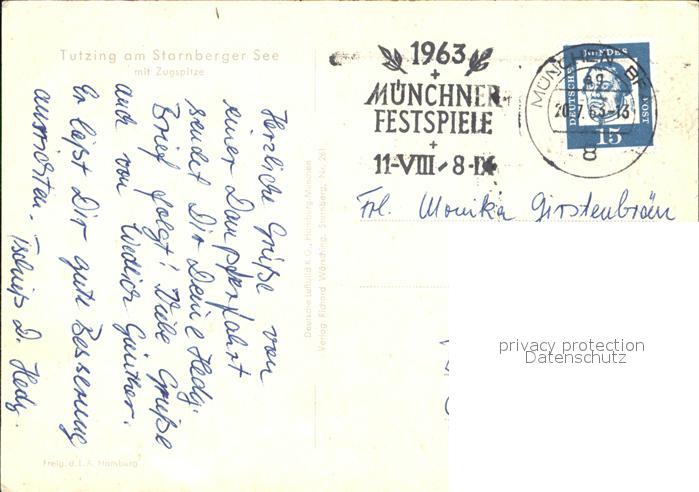 Tutzing am Starnberger See
mit Zugspitze
Herzliche Grüße von
einer Dampferfahrt
sendet Dir Deine Hedy.
Brief folgt! Viele Grüße
auch von Günther.
Er läßt Dir gute Besserung
ausrichten. Tschüß D. Hedy.
Freig. d. L.A. Hamburg
Deutsche Luftbild K.G., Hamburg-München
Verlag: Richard Wörsching, Starnberg, Nr. 261
1963
+
MÜNCHNER
FESTSPIELE
+
11-VIII-8-IX
MÜNCHEN BP
20.7.63-13
8
DEUTSCHE BUNDESPOST
15
Frl. Monika Girstenbräu
privacy protection
Datenschutz